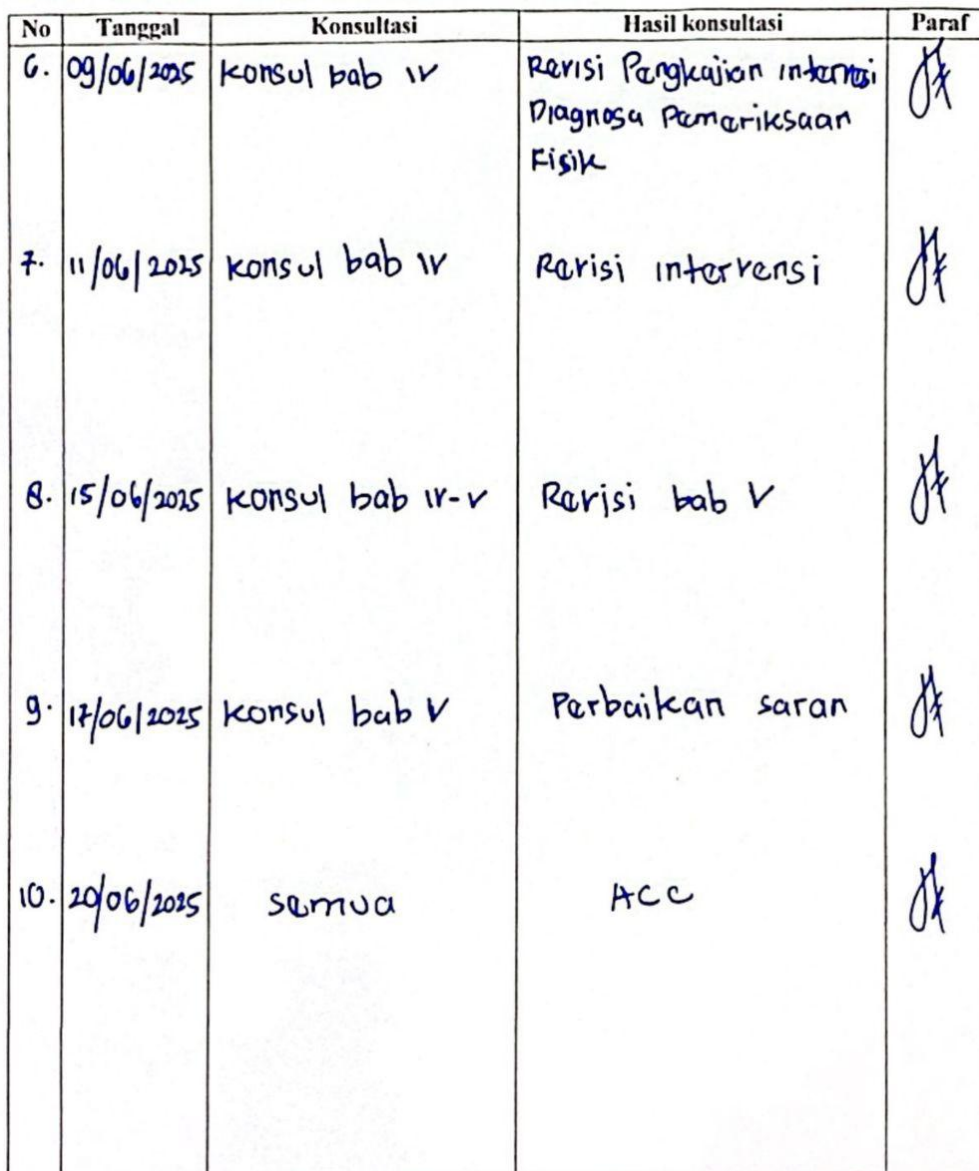 No Tanggal Konsultasi Hasil konsultasi Paraf
6. 09/06/2025 konsul bab IV Revisi Pengkajian intervensi
Diagnosa Pemeriksaan
Fisik
7. 11/06/2025 konsul bab IV Revisi intervensi
8. 15/06/2025 konsul bab IV-V Revisi bab V
9. 17/06/2025 konsul bab V Perbaikan saran
10. 20/06/2025 semua ACC